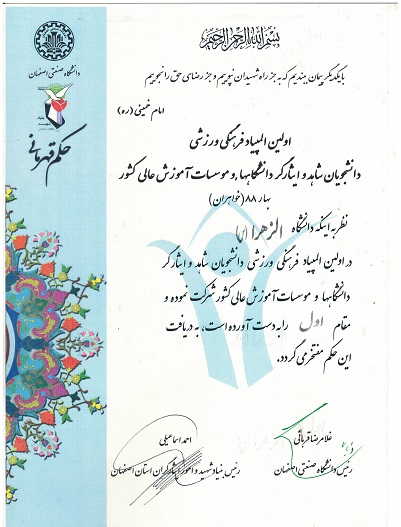 بسم الله الرحمن الرحیم
دانشگاه صنعتی اصفهان
حکم قهرمانی
با یکدیگر پیمان بندیم که به جز راه شهیدان نپوییم و جز رضای حق را نجوییم
امام خمینی (ره)
اولین المپیاد فرهنگی ورزشی
دانشجویان شاهد و ایثارگر دانشگاهها و موسسات آموزش عالی کشور
بهار ۸۸ (خواهران)
نظر به اینکه دانشگاه الزهرا (س)
در اولین المپیاد فرهنگی ورزشی دانشجویان شاهد و ایثارگر
دانشگاهها و موسسات آموزش عالی کشور شرکت نموده و
مقام اول را به دست آورده است، به دریافت
این حکم مفتخر می گردد.
غلامرضا قربانی
رئیس دانشگاه صنعتی اصفهان
احمد اسماعیلی
رئیس بنیاد شهید و امور ایثارگران استان اصفهان